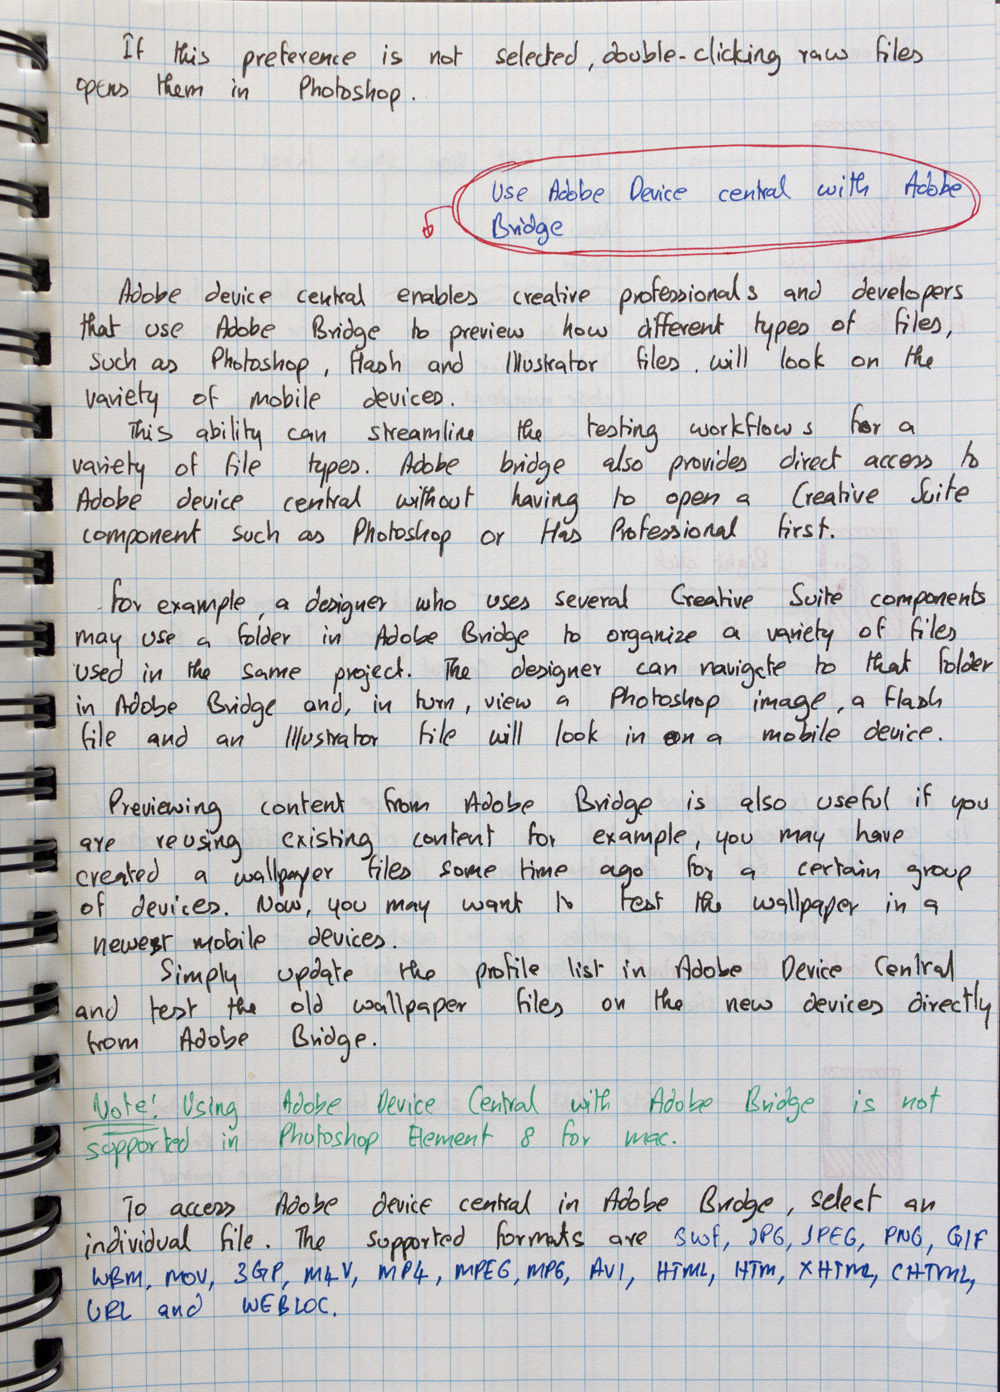 If this preference is not selected, double-clicking raw files
opens them in Photoshop.
Use Adobe Device central with Adobe
Bridge
Adobe device central enables creative professionals and developers
that use Adobe Bridge to preview how different types of files,
such as Photoshop, flash and Illustrator files, will look on the
variety of mobile devices.
This ability can streamline the testing workflows for a
variety of file types. Adobe bridge also provides direct access to
Adobe device central without having to open a Creative Suite
component such as Photoshop or Has Professional first.
for example, a designer who uses several Creative Suite components
may use a folder in Adobe Bridge to organize a variety of files
used in the same project. The designer can navigate to that folder
in Adobe Bridge and, in turn, view a Photoshop image, a flash
file and an Illustrator file will look in on a mobile device.
Previewing content from Adobe Bridge is also useful if you
are reusing existing content for example, you may have
created a wallpayer files some time ago for a certain group
of devices. Now, you may want to test the wallpaper in a
newest mobile devices.
Simply update the profile list in Adobe Device Central
and test the old wallpaper files on the new devices directly
from Adobe Bridge.
Note! Using Adobe Device Central with Adobe Bridge is not
supported in Photoshop Element 8 for mac.
To access Adobe device central in Adobe Bridge, select an
individual file. The supported formats are SWF, JPG, JPEG, PNG, GIF
WBM, MOV, 3GP, M4V, MP4, MPEG, MPG, AVI, HTML, HTM, XHTML, CHTML,
URL and WEBLOC.